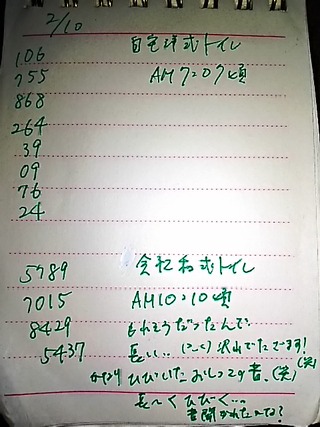 2/10
106 自宅洋式トイレ
755 AM7:07頃
868
264
39
09
76
24
5789 会社和式トイレ
7015 AM10:10頃
8429 もれそうだったんで
5437 長い… 沢山でたでます!(笑)
かなりひびいたおしっこの音、(笑)
長〜くひびく…。
音聞かれたかな?